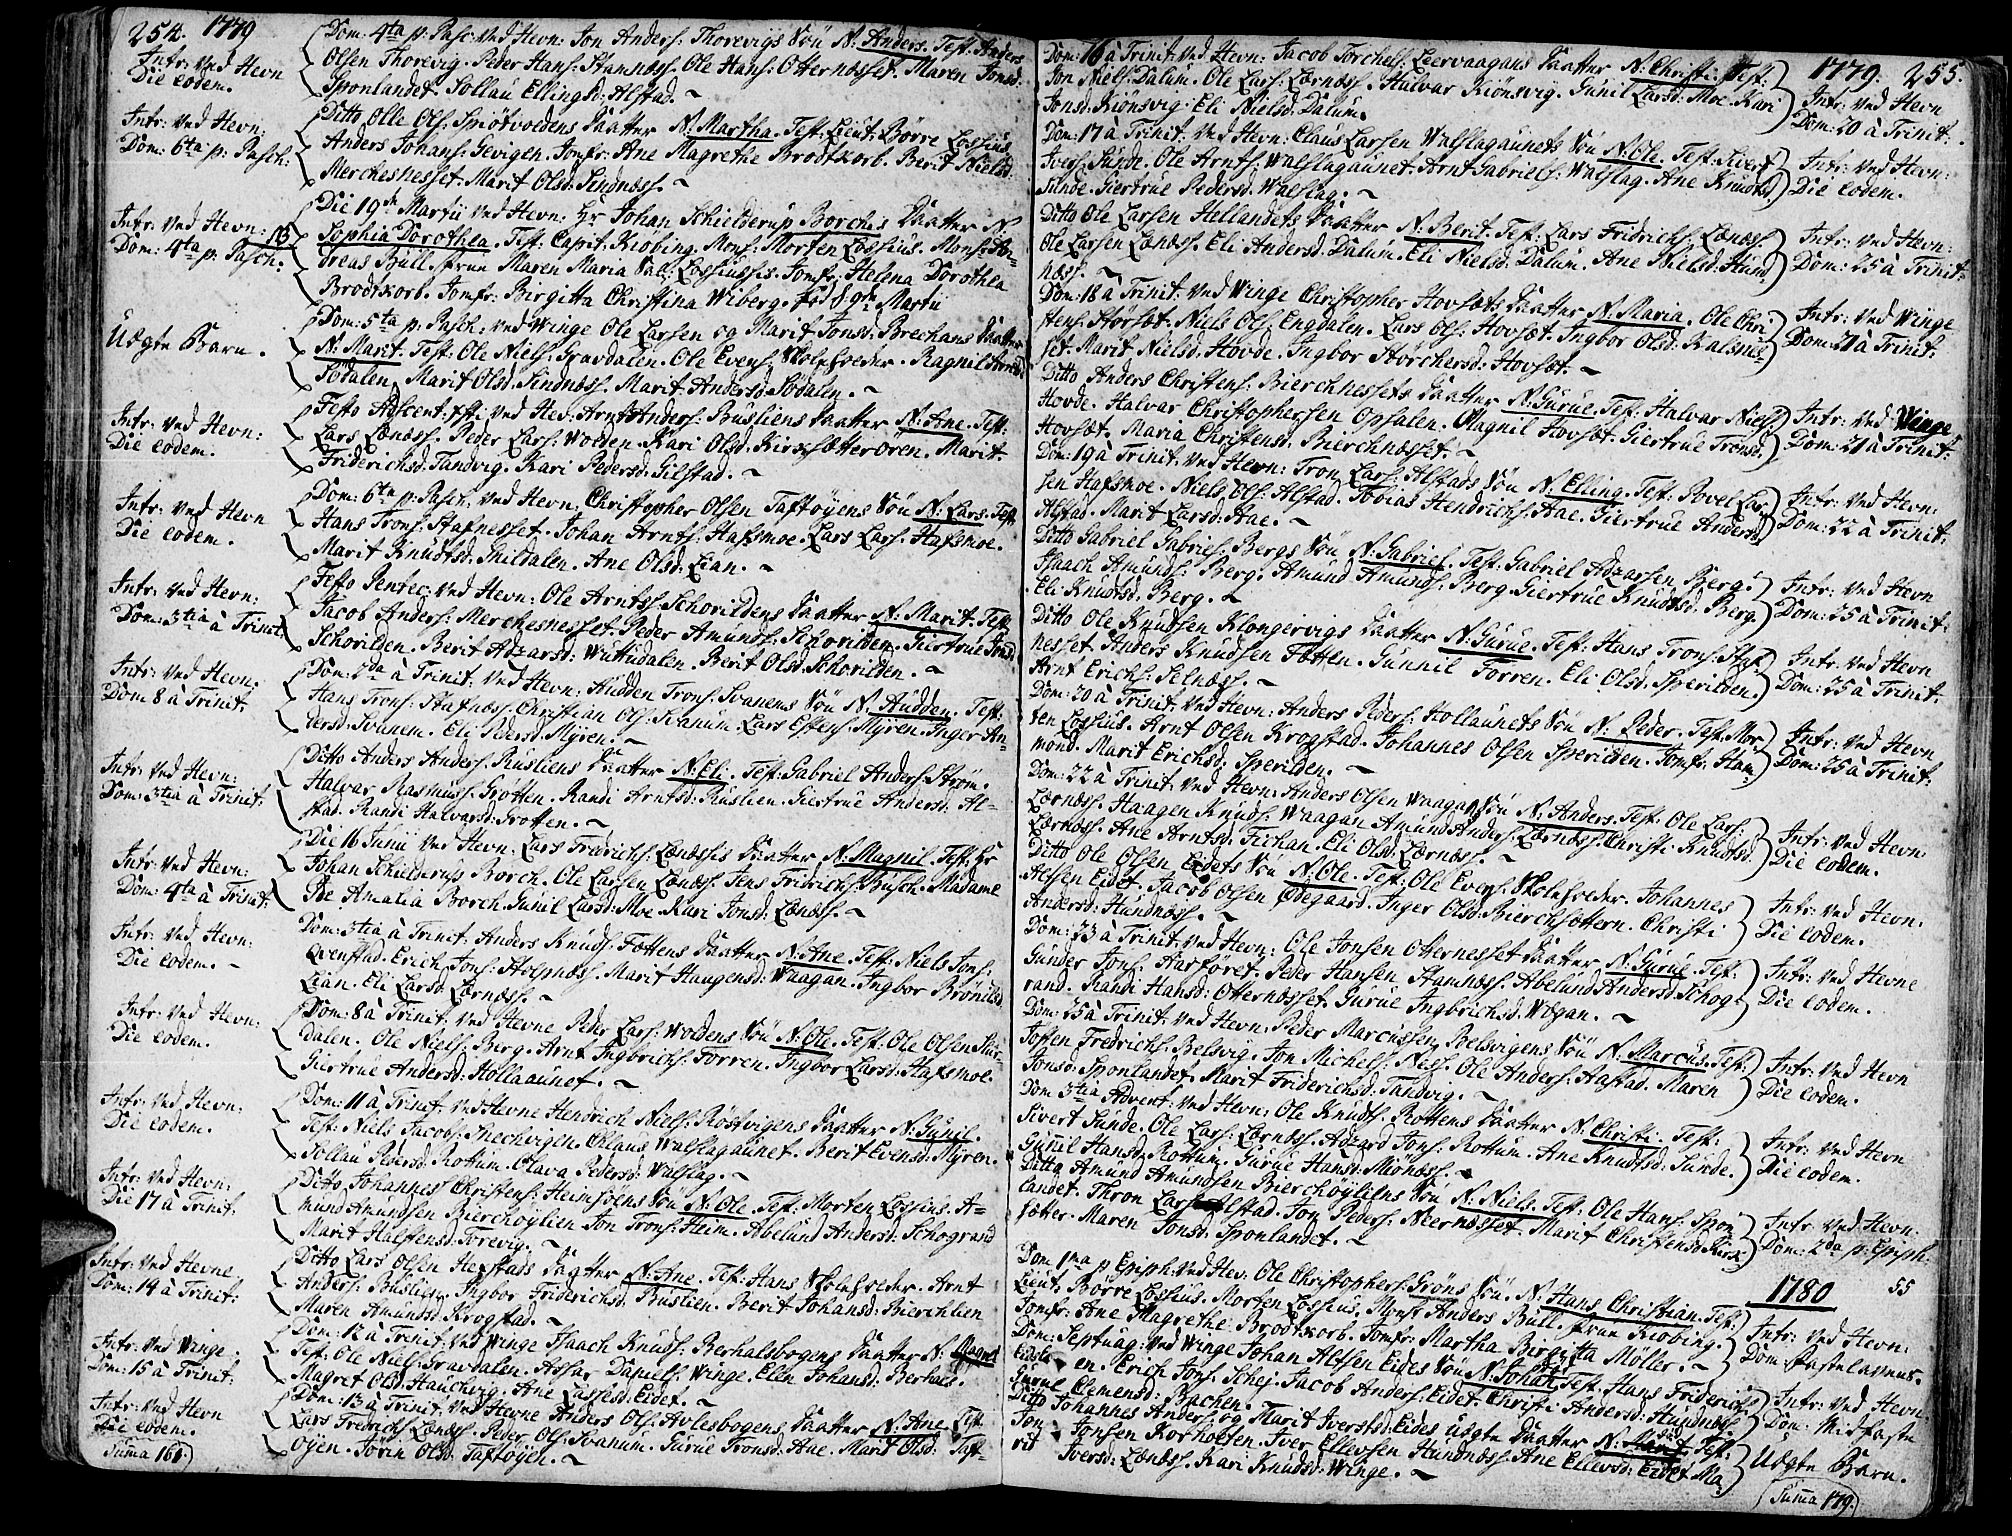 254. 1779
Intr: ved Hevn
Die eodem.
Dom: 4ta p: Pasc: ved Hevn: Jon Anders: Thorevigs Søn N: Anders. Test: Anders
Olsen Thorevig. Peder Hans: Stamness. Ole Hans: Otternesset. Maren Jonsd:
Sponlandet. Sollau Ellingsd: Alstad. ~
Intr: ved Hevn:
Dom: 6ta p: Pasch:
Ditto Olle Ols: Spiötvoldens Daatter N: Martha. Test: Lieut: Börre Lossius
Anders Johans: Gevigen. Jomfr: Ane Magrethe Brodtkorb. Berit Nielsd:
Merchesnesset. Marit Olsd: Sindness. ~
Intr: ved Hevn: NB
Dom: 4ta p: Pasch:
Die 19de Martii ved Hevn: Hr Johan Schielderup Borchs Daatter N:
Sophia Dorothea. Test: Capit: Kiobing. Mons: Morten Lossius. Mons: An-
dreas Bull. frue Maren Maria Sal: Lossiuses. Jomfr: Helena Dorothea
Brodtkorb. Jomfr: Birgitta Christina Wiberg. fød d 9de Martii
Uægte Barn.
Dom: 5ta p: Pasch: ved Winge Ole Larsen og Marit Jonsd: Brechans Daatter
N: Marit. Test: Ole Niels: Gravdalen. Ole Evens: Skoleholder. Ragnil
Södalen. Marit Olsd: Sindness. Marit Andersd: Södalen. ~
Intr: ved Hevn:
Die eodem.
Festo Ascent: xsti ved Hev: Arnt Anders: Busliens Daatter N: Ane. Test:
Lars Leness. Peder Lars: Wolden. Kari Olsd: Kirksætterören. Marit
Friderichsd: Tandvig. Kari Pedersd: Gilstad. ~
Intr: ved Hevn
Die eodem.
Dom: 6ta p: Pasch: ved Hevn: Christopher Olsen Taftöyens Søn N: Lars. Test:
Hans Trons: Stafnesset. Johan Arnts: Hafsmoe. Lars Lars: Hafsmoe.
Marit Knudtsd: Snildalen. Ane Olsd: Lian. ~
Intr: ved Hevn:
Dom: 3tia à Trinit:
Festo Pentec: ved Hevn: Ole Arnts: Schorildens Daatter N: Marit. Test:
Jacob Anders: Merchesnesset. Peder Amunds: Schorilden. Giertrue
Schorilden. Berit Adzarsd: Wuttudalen. Berit Olsd: Schorilden. ~
Intr: ved Hevn.
Dom 8 à Trinit.
Dom: 2da à Trinit: ved Hevn: Hudden Trons: Svanems Søn N: Hudden. Test:
Hans Trons: Stafness. Christian Ols: Svanum. Lars Estens: Myren. Inger An-
dersd: Svanem. Eli Pedersd: Myren. ~
Intr: ved Hevn:
Dom: 3tia à Trinit.
Ditto Anders Anders: Rusliens Daatter N: Eli. Test: Gabriel Anders: Ström.
Halvar Rasmuss: Grotten. Randi Arntsd: Ruslien. Giertrue Andersd: Al-
stad. Randi Halvarsd: Grotten. ~
Intr: ved Hevn:
Dom: 4ta à Trinit:
Die 16 Junii ved Hevn: Lars Fredrichs: Lenesses Daatter N: Magnil. Test: Hr
Johan Schielderup Borch. Ole Larsen Læness. Jens Fridrichs: Busch. Madame
Amalia Borch. Gunil Larsd: Moe. Kari Jonsd: Læness. ~
Intr: ved Hevn:
Die eodem. ~
Dom: 3tia à Trinit: Anders Knuds: Fættens Daatter N: Ane. Test: Niels Jons:
Qvenstad. Erich Jons: Stolsness. Marit Haugensd: Waagan. Ingbor Brönilds
Lian. Eli Larsd: Lerness. ~
Intr: ved Hevn:
Die eodem.
Dom: 8 à Trinit: ved Hevne Peder Lars: Woldens Søn N: Ole. Test: Ole Olsen Stur-
dalen. Ole Niels: Berg. Arnt Ingbrichs: Torren. Ingbor Larsd: Hafsmoe.
Giertrue Andersd: Hollaaunet. ~
Intr: ved Hevn:
Die eodem.
Dom: 11 à Trinit: ved Hevne Hendrich Niels: Röstvigens Daatter N: Gunil.
Test: Niels Jacobs: Snechvigen. Claus Walslagaunet. Berit Evensd: Myren.
Sollau Pedersd: Rottum. Olava Pedersd: Walslag. ~
Intr: ved Hevn:
Die 17 à Trinit:
Ditto Johannes Christens: Heimsøens Søn N: Ole. Test: Morten Lossius. A-
mund Amundsen Bierchöylien. Jon Trons: Heim. Abelund Andersd: Schogrand
Marit Halstensd: Torevig. ~
Intr: ved Hevne
Dom: 14 à Trinit:
Ditto Lars Olsen Hegstads Daatter N: Ane. Test: Hans Skoleholder. Arnt
Anders: Buslien. Ingbor Friderichsd: Buslien. Berit Johansd: Bierchlien
Maren Amundsd: Krogstad. ~
Intr: ved Winge.
Dom: 15 à Trinit:
Dom: 12 à Trinit: ved Winge Isaach Knuds: Berhalsbogens Daatter N: Magnil
Test: Ole Niels: Gravdalen. Assar Daniels: Winge. Elen Johansd: Berhals.
Magret Olsd: Hauchvig. Ane Lassesd: Eidet. ~
Intr: ved Hevn
Die eodem.
Dom: 13 à Trinit: ved Hevne Anders Ols: Avlesbogens Daatter N: Ane. Test:
Lars Fredrichs: Læness. Peder Ols: Svanum. Gurue Tronsd: Hae. Marit Olsd: Taft-
öyen. Sorin Olsd: Taftöyen. ~
Summa 161.
1779. 255.
Dom: 16 à Trinit: ved Hevn: Jacob Torchels: Leervaagans Daatter N: Christi. Test:
Jon Niels: Dalum. Ole Lars: Lerness. Halvar Kiönsvig. Gunil Larsd: Moe. Kari
Jonsd: Kiönsvig. Eli Nielsd: Dalum.
Intr: ved Hevn
Dom: 20 à Trinit:
Dom: 17 à Trinit: ved Hevn: Claus Larsen Walslagaunets Søn N: Ole. Test: Sivert
Ivers: Sunde. Ole Arnts: Walslagaunet. Arnt Gabriels: Walslag. Ane Knudtsd:
Sunde. Giertrue Pedersd: Walslag. ~
Intr: ved Hevn:
Die eodem.
Ditto Ole Larsen Hellandets Daatter N: Berit. Test: Lars Fridrichs: Læness
Ole Larsen Læness. Eli Andersd: Dalum. Eli Nielsd: Dalum. Ane Nielsd: Hund
ness. ~
Intr: ved Hevn:
Dom: 25 à Trinit:
Dom: 18 à Trinit: ved Winge Christopher Hovsæts Daatter N: Maria. Ole Chri
stens: Hovsæt. Niels Ols: Engdalen. Lars Ols: Hovsæt. Ingbor Olsd: Kalsnes
set. Marit Nielsd: Hovde. Ingbor Störchersd: Hovsæt. ~
Intr: ved Winge
Dom: 21 à Trinit:
Ditto Anders Christens: Bierchnessets Daatter N: Gurue. Test: Halvar Niels:
Hovde. Halvar Christophersen Opsalen. Magnil Hovsæt. Giertrue Tronsd:
Hovsæt. Maria Christensd: Bierchnesset. ~
Intr: ved Winge
Dom: 21 à Trinit:
Dom: 19 à Trinit: ved Hevn: Tron Lars: Alstads Søn N: Elling. Test: Povel Lar
sen Hafsmoe. Niels Ols: Alstad. Tobias Hendrichs: Hae. Giertrue Andersd:
Alstad. Marit Larsd: Hae. ~
Intr: ved Hevn:
Dom: 22 à Trinit:
Ditto Gabriel Gabriels: Bergs Søn N: Gabriel. Test: Gabriel Adzarsen Berg.
Isaach Amunds: Berg. Amund Amunds: Berg. Giertrue Knudtsd: Berg
Eli Knudtsd: Berg. ~
Intr: ved Hevn
Dom: 25 à Trinit:
Ditto Ole Knudsen Klongervigs Daatter N: Gurue. Test: Hans Trons: Staf
nesset. Anders Knudsen Fætten. Gunnil Torren. Eli Olsd: Sperilden.
Arnt Erichs: Selness. ~
Intr: ved Hevn
Dom: 25 à Trinit:
Dom: 20 à Trinit: ved Hevn: Anders Peders: Hollaunets Søn N: Peder. Test: Mor
ten Lossius. Arnt Olsen Krogstad. Johannes Olsen Sperilden. Jomfr: Ham
mond. Marit Erichsd: Sperilden. ~
Intr: ved Hevn
Dom: 25 à Trinit:
Dom: 22 à Trinit: ved Hevn: Anders Olsen Waagans Søn N: Anders. Test: Ole Lars:
Lerness. Haagen Knuds: Waagan. Amund Anders: Lerness. Christi Knudtsd:
Lerness. Ane Arntsd: Fichan. Eli Olsd: Lerness. ~
Intr: ved Hevn:
Die eodem.
Ditto Ole Olsen Eidets Søn N: Ole. Test: Ole Evens: Skoleholder. Johannes
Altsen Eidet. Jacob Olsen Ødegaard. Inger Olsd: Bierchsættern. Christi
Andersd: Hundness. ~
Intr: ved Hevn:
Die eodem.
Dom: 23 à Trinit: ved Hevn: Ole Jonsen Otternesset Daatter N: Gurue. Test:
Gunder Jons: Aarsöret. Peder Hansen Stamness. Abelund Andersd: Schog-
rand. Randi Hansd: Otternesset. Gurue Ingbrichsd: Wogan. ~
Intr: ved Hevne
Die eodem.
Dom: 25 à Trinit: ved Hevn: Peder Marcussen Belsvigens Søn N: Marcus. Test:
Josten Fredrichs: Belsvig. Jon Michels: Nes. Ole Anders: Aastad. Maren
Jonsd: Sponlandet. Marit Friderichsd: Tandvig. ~
Intr: ved Hevn
Die eodem.
Dom: 3tia Advent: ved Hevn: Ole Knuds: Rottens Daatter N: Christi. Test:
Sivert Sunde. Ole Lars: Lerness. Adzard Jons: Rottum. Ane Knudtsd: Sunde.
Gunil Hansd: Rottum. Gurue Hansd: Miöness. ~
Intr: ved Hevn
Die eodem.
Ditto Amund Amundsen Bierchöyliens Søn N: Niels. Test: Ole Hans: Spon
landet. Thron Lars: Alstad. Jon Peders: Neernesset. Marit Christensd: Kirk
sæter. Maren Jonsd: Sponlandet. ~
Intr: ved Hevn:
Dom: 2da p: Epiph:
1780 55
Dom: 1ma p Epiph: ved Hev: Ole Christophers: Gröns Søn N: Hans Christian. Test:
Lieut: Börre Lossius. Morten Lossius. Mons: Anders Bull. frue Kiobing.
Jomfr: Ane Magrethe Brodtkorb. Jomfr: Martha Birgitta Möller. ~
Intr: ved Hevn:
Dom: fastelavens.
Dom: Septuag: ved Winge Johan Altsen Eides Søn N: Johan. Test: Hans Friderichs
en. Erich Jons: Schej. Jacob Anders: Eidet. Christi Andersd: Hundness
Gunil Clemensd: Bachen.
Intr: ved Hevn
Dom: Midfaste
Ditto Johannes Anders: og Marit Iversdsd: Eides uægte Daatter N: Marit. Test:
Jon Jonsen Korholten. Iver Ellevsen Hundness. Ane Ellevsd: Eidet. Ma
rit Iversd: Læness. Kari Knudsd: Winge. ~
Uægte Barn.
Summa 179.